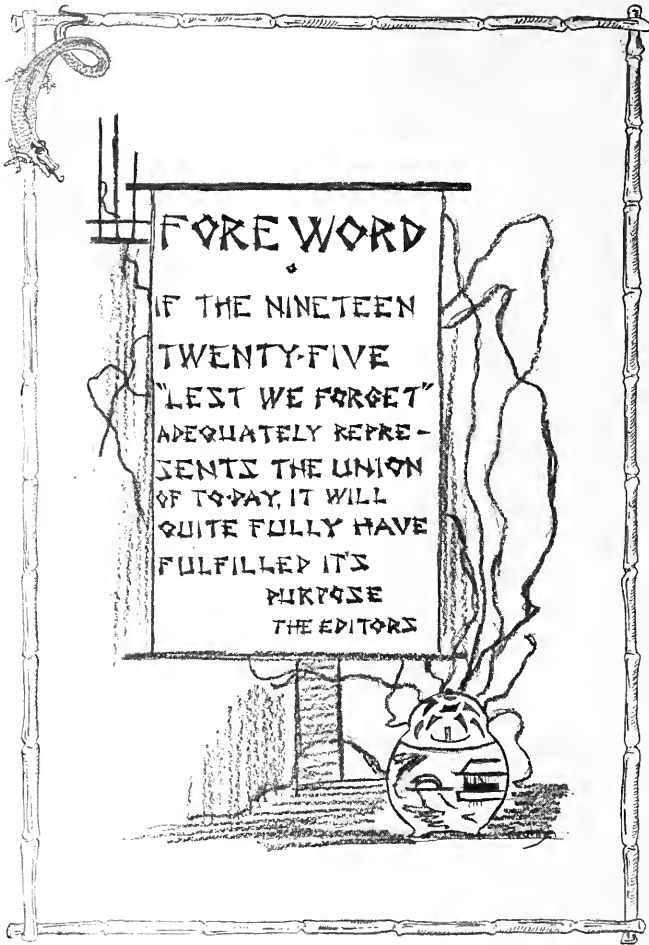 FOREWORD
IF THE NINETEEN
TWENTY-FIVE
"LEST WE FORGET"
ADEQUATELY REPRE-
SENTS THE UNION
OF TO-DAY, IT WILL
QUITE FULLY HAVE
FULFILLED IT'S
PURPOSE
THE EDITORS